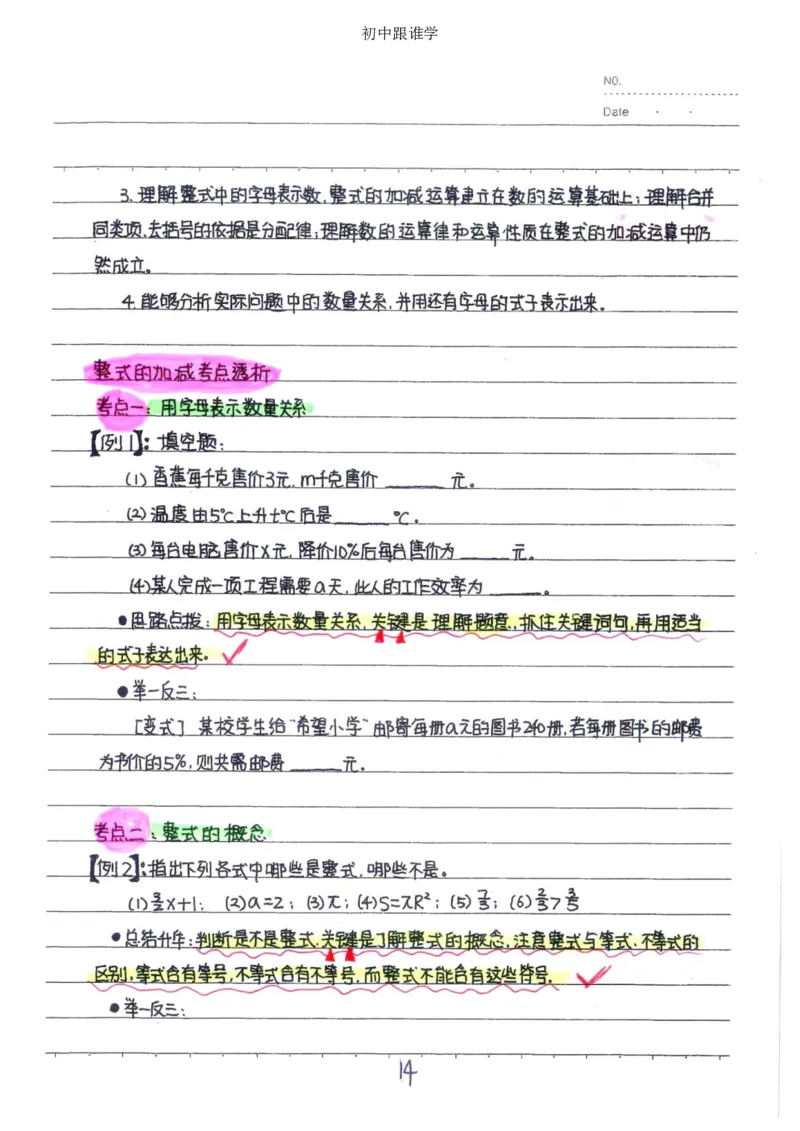 初中跟谁学
NO.
Date
3. 理解整式中的字母表示数,整式的加减运算建立在数的运算基础上;理解合并
同类项、去括号的依据是分配律;理解数的运算律和运算性质在整式的加减运算中仍
然成立。
4. 能够分析实际问题中的数量关系,并用还有字母的式子表示出来。
整式的加减考点透析
考点一:用字母表示数量关系
【例1】:填空题:
(1)香蕉每千克售价3元,m千克售价______元。
(2)温度由5℃上升t℃后是______℃。
(3)每台电脑售价x元,降价10%后每台售价为______元。
(4)某人完成一项工程需要a天,此人的工作效率为______。
●思路点拨:用字母表示数量关系,关键是理解题意,抓住关键词句,再用适当
的式子表达出来。
●举一反三:
[变式] 某校学生给“希望小学”邮寄每册a元的图书240册,若每册图书的邮费
为书价的5%,则共需邮费______元。
考点二:整式的概念
【例2】:指出下列各式中哪些是整式,哪些不是。
(1)
●总结升华:判断是不是整式,关键是了解整式的概念,注意整式与等式、不等式的
区别,等式含有等号,不等式含有不等号,而整式不能含有这些符号.
●举一反三:
14